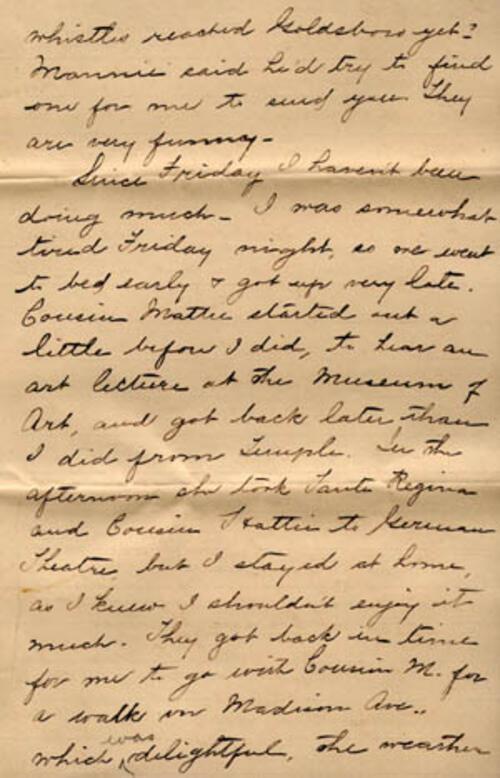 whistles reached Goldsboro yet?
Mannie said he'd try to find
one for me to send you. They
are very funny -
Since Friday I haven't been
doing much - I was somewhat
tired Friday night, so we went
to bed early & got up very late.
Cousin Mattie started out a
little before I did, to hear an
art lecture at the Museum of
Art, and got back later than
I did from Temple. In the
afternoon she took Tante Regina
and Cousin Hattie to German
Theatre, but I stayed at home,
as I knew I shouldn't enjoy it
much. They got back in time
for me to go with Cousin M. for
a walk on Madison Ave.,
which was delightful, the weather